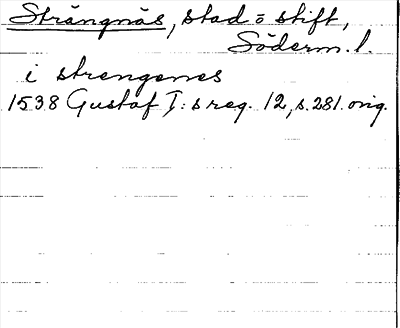 Strängnäs, stad o stift,
Söderm. l.
i strengenes
1538 Gustaf I:s reg. 12, s. 281. orig.